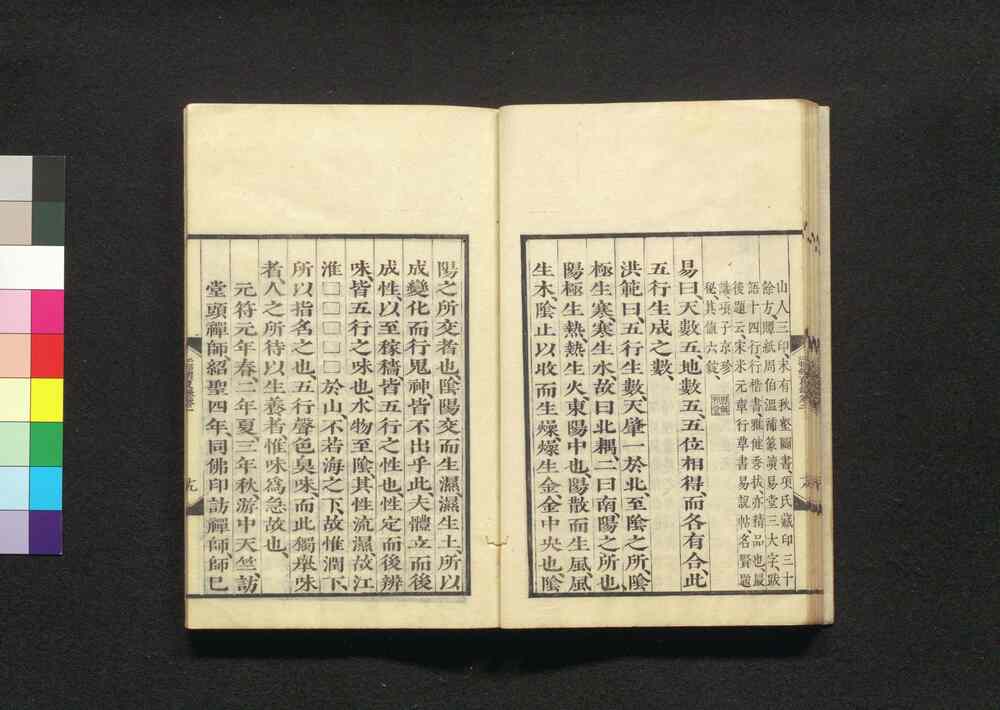 山人三印、末有秋壑圖書、項氏藏印三十
餘方、贉紙周伯溫蒲篆蕢易堂三大字、跋
語十四行、行楷書、雅健秀拔、亦精品也、最
後題云、宋米元章行草書易說帖、名賢題
識、項子京珍
秘、其值六錠、
易曰天數五、地數五、五位相得、而各有合、此
五行生成之數、
洪範曰、五行生數、天肇一於北、至陰之所、陰
極生寒、寒生水、故曰北耦、二曰南、陽之所也、
陽極生熱、熱生火、東陽中也、陽散而生風、風
生木、陰止以收而生燥、燥生金、金中央也、陰
陽之所交者也、陰陽交而生濕、濕生土、所以
成變化而行鬼神、皆不出乎此、夫體立而後
成性、以至稼穡、皆五行之性也、性定而後辨
味、皆五行之味也、水物至陰、其性流濕、故江
淮□□□□於山、不若海之下、故惟潤下、
所以指名之也、五行聲色臭味、而此獨舉味
者、人之所待以生養者、惟味爲急故也、
元符元年春、二年夏、三年秋、游中天竺、訪
堂頭禪師、紹聖四年同佛印訪禪師、師已